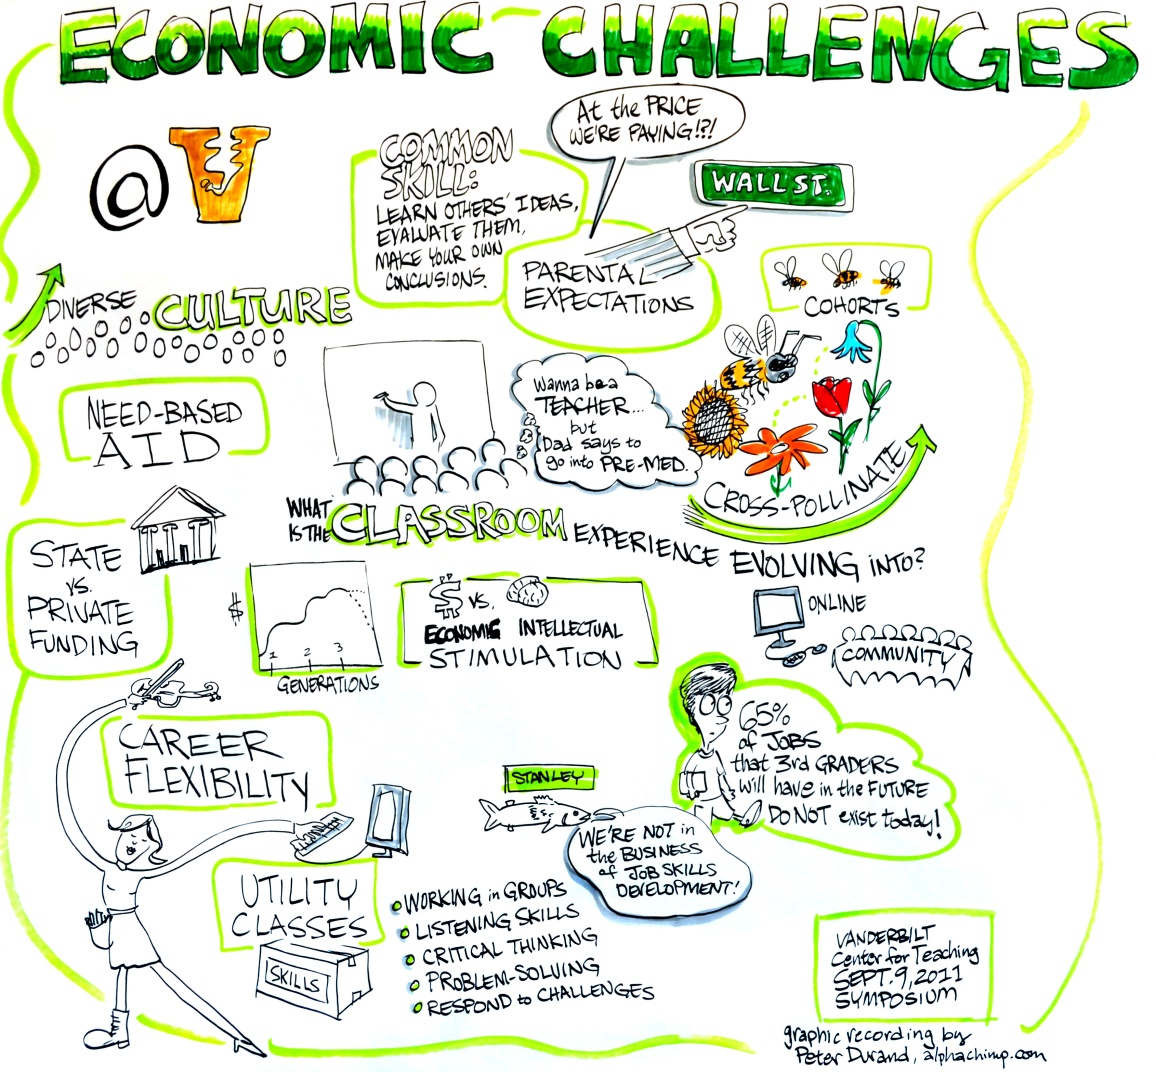 ECONOMIC CHALLENGES
@ V
COMMON
SKILL:
LEARN OTHERS' IDEAS,
EVALUATE THEM,
MAKE YOUR OWN
CONCLUSIONS.
At the PRICE
WE'RE PAYING!?!
WALL ST.
PARENTAL
EXPECTATIONS
COHORTS
DIVERSE CULTURE
NEED-BASED
AID
Wanna be a
TEACHER...
but
Dad says to
go into PRE-MED.
CROSS-POLLINATE
WHAT
IS THE CLASSROOM EXPERIENCE EVOLVING INTO?
STATE
vs.
PRIVATE
FUNDING
$
1 2 3
GENERATIONS
$ vs.
ECONOMIC INTELLECTUAL
STIMULATION
ONLINE
COMMUNITY
CAREER
FLEXIBILITY
65%
of JOBS
that 3rd GRADERS
will have in the FUTURE
DO NOT exist today!
STANLEY
WE'RE NOT in
the BUSINESS
of JOB SKILLS
DEVELOPMENT!
UTILITY
CLASSES
SKILLS
WORKING in GROUPS
LISTENING SKILLS
CRITICAL THINKING
PROBLEM-SOLVING
RESPOND to CHALLENGES
VANDERBILT
Center for Teaching
SEPT. 9, 2011
SYMPOSIUM
graphic recording by
Peter Durand, alphachimp.com